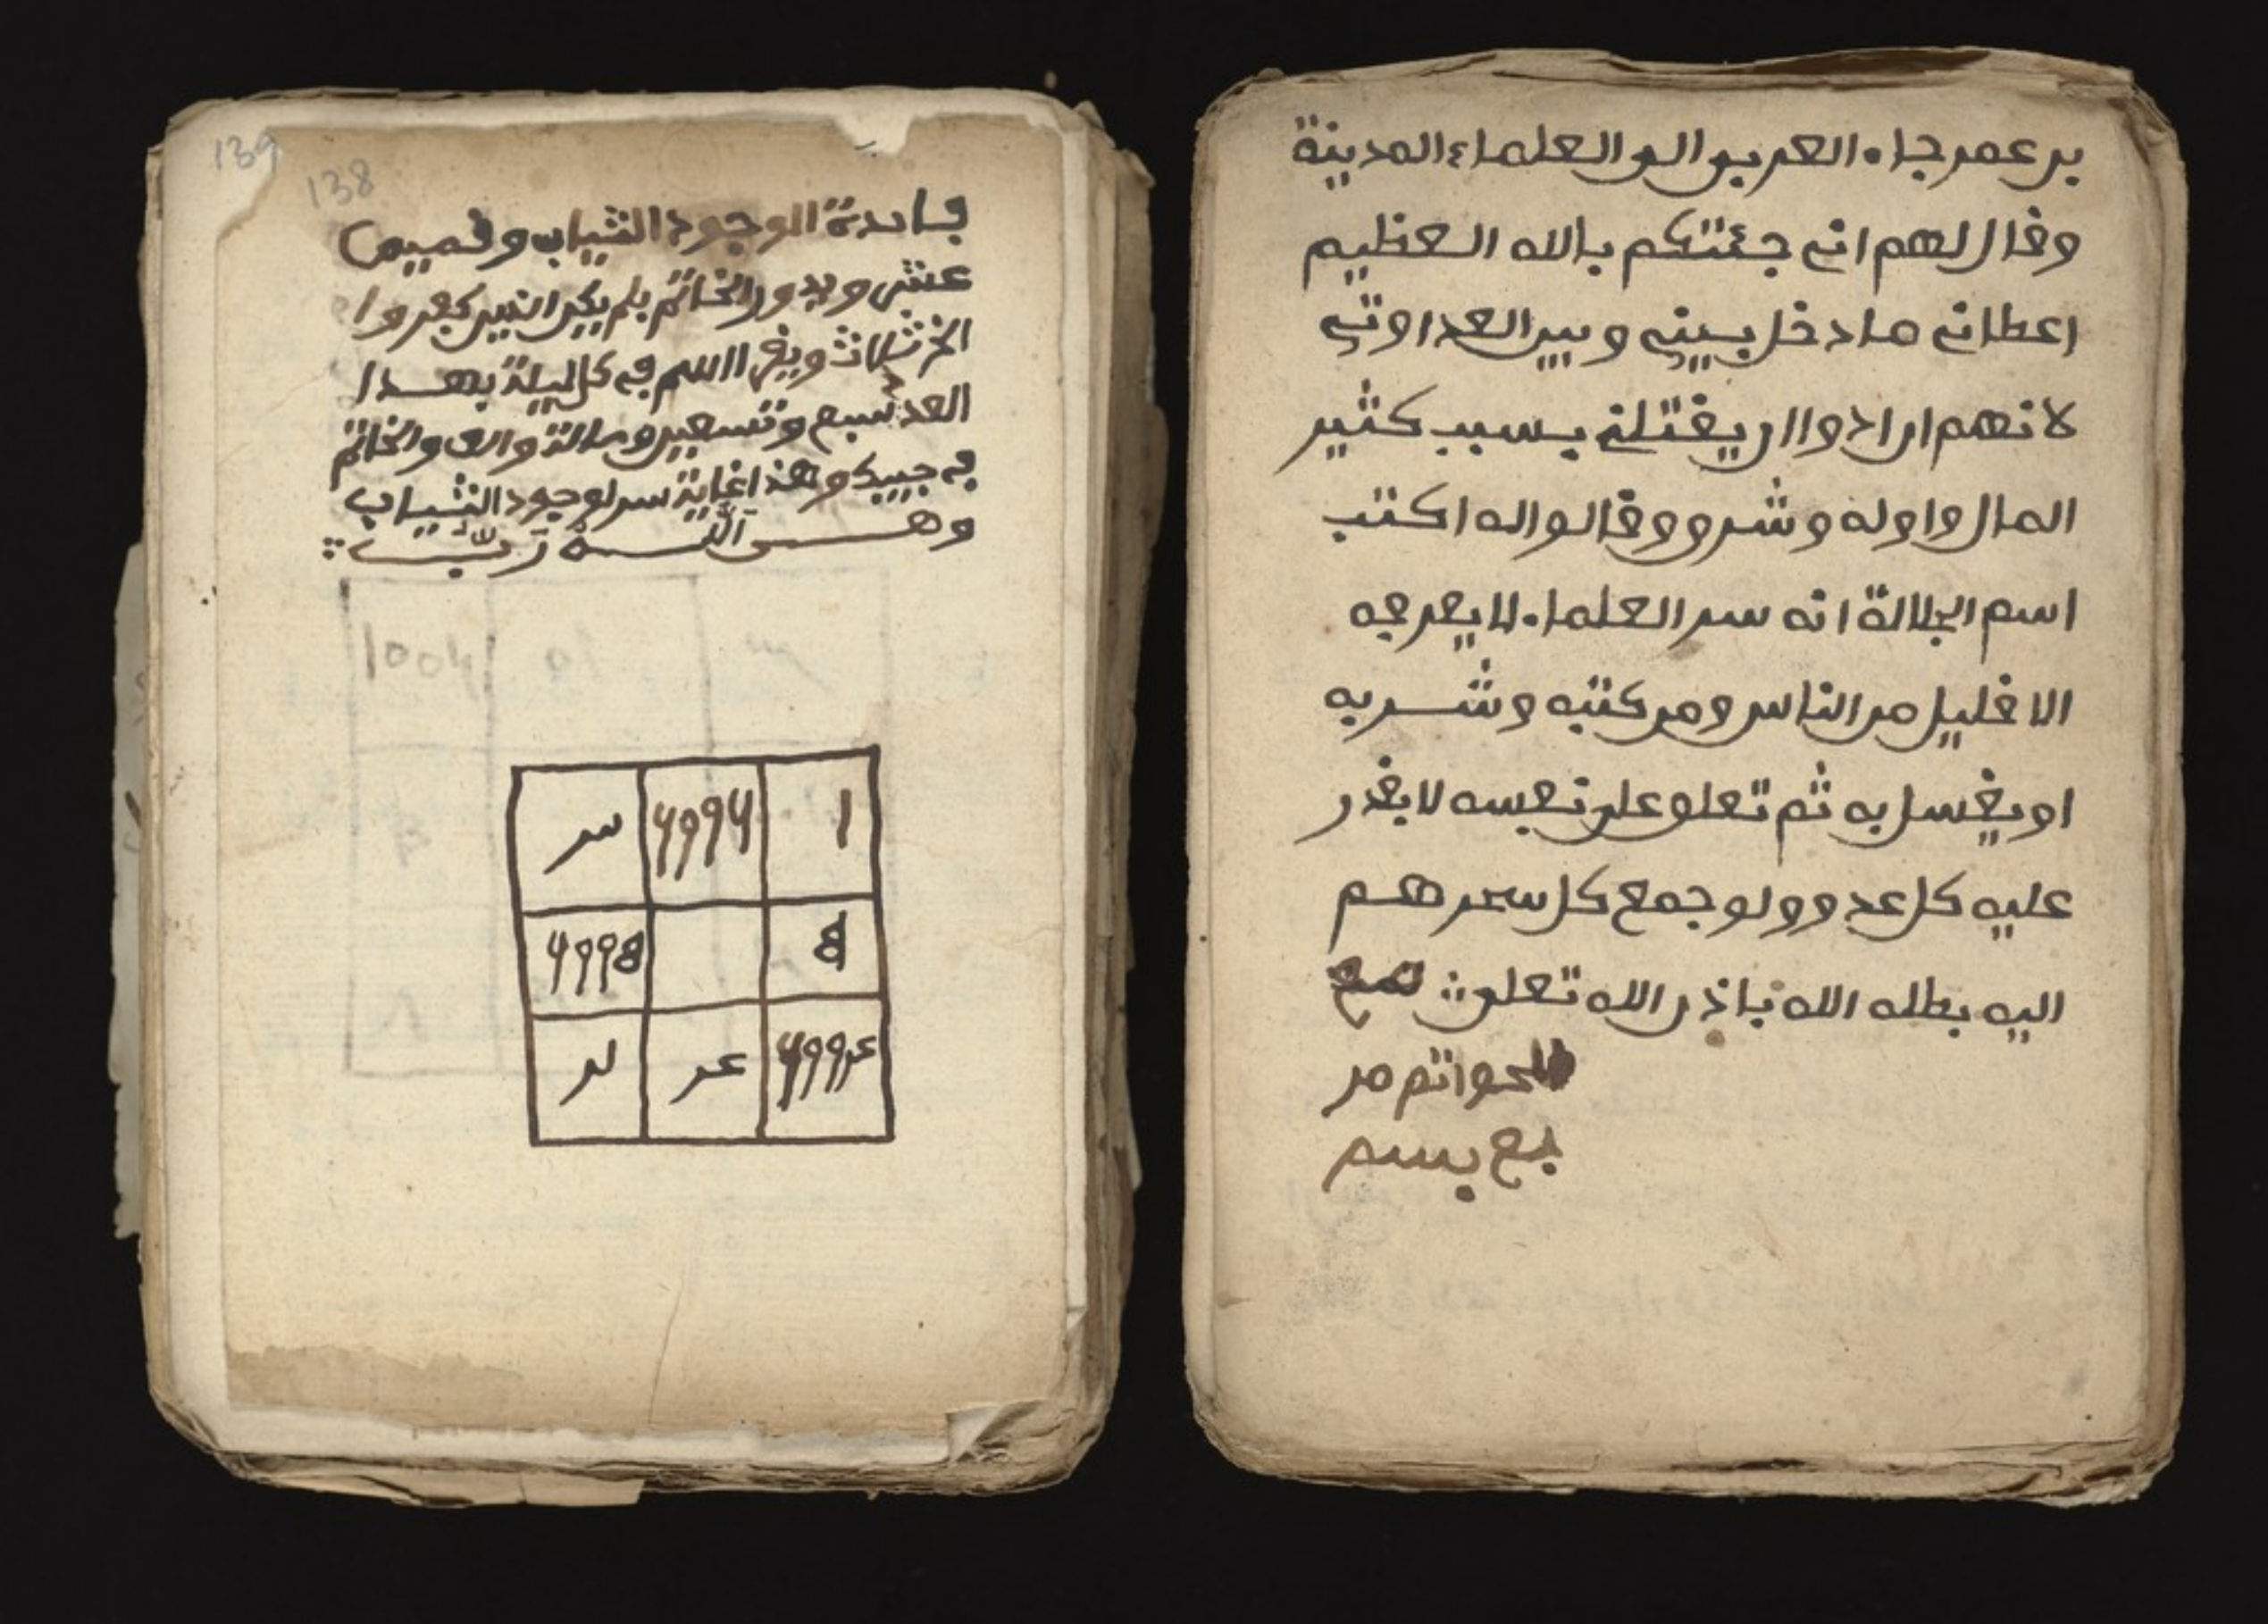 بن عمر جاء العربي الى العلماء المدينة
وقال لهم اني جئتكم بالله العظيم
اعطاني ما دخل بيني وبين العداوتي
لانهم ارادوا ان يقتلني بسبب كثير
المال واوله وشرو وقالوا له اكتب
اسم الجلالة انه سر العلماء لا يعرفه
الا قليل من الناس ومن كتبه وشربه
او يغسل به ثم تعلو على نفسه لا يقدر
عليه كل عدو ولو جمع كل سحرهم
اليه بطله الله باذن الله تعلى
الخواتم من
بسم
139
138
فايدة الوجود الثياب وقميص
عشر ويدور الخاتم بلم يكن الذين كفروا
الخ ثلاث ويقرا السم في كل ليلة بهذا
العدد سبع وتسعين ومائة والف والخاتم
في جيبك وهذا غاية سر لوجود الثياب
وهـ
1 6996 سر
8 6998
699 عر عر لر